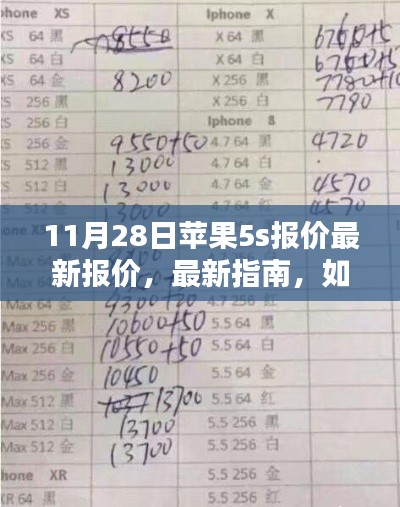 Iphone XS Iphone X
XS 64 黑 8550 X 64 黑 6760+5
XS 64 白 X 64 白 6760+5
XS 64 金 8200 X 256 黑 7780+10
XS 256 黑 X 256 白 7790
XS 256 白 Iphone 8
XS 256 金 9550+50 4.7 64 黑 4720
XS 512 黑 13000 4.7 64 白
13000 4.7 64 金 4570
13000 4570
11月28日苹果5s报价最
新报价，最新指南，如
Max 64 金 9300+
Max 256 黑 10600+50 5.5 64 黑
Max 256 白 10550+50 5.5 64 白
Max 256 金 10450 5.5 64 金
Max 512 黑 13700 5.5 64 红
Max 512 白 13700 5.5 256 黑
Max 512 金 13700 5.5 256 白
Iphone XR 5.5 256 金
XR 64 黑 5.5 256 红